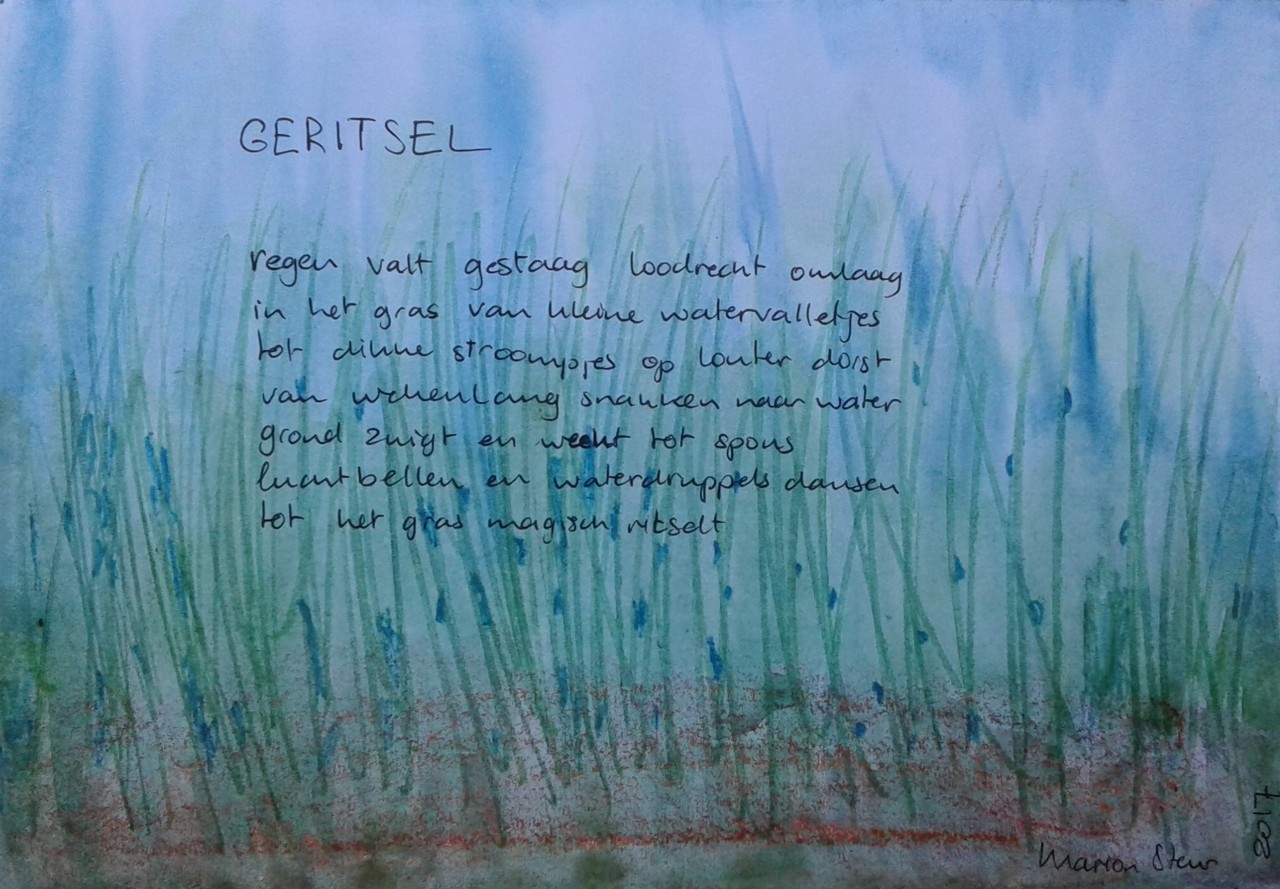 GERITSEL
regen valt gestaag loodrecht omlaag
in het gras van kleine watervalletjes
tot dunne stroompjes op louter dorst
van wekenlang snakken naar water
grond zuigt en weekt tot spons
luchtbellen en waterdruppels dansen
tot het gras magisch ritselt
Marion
2017